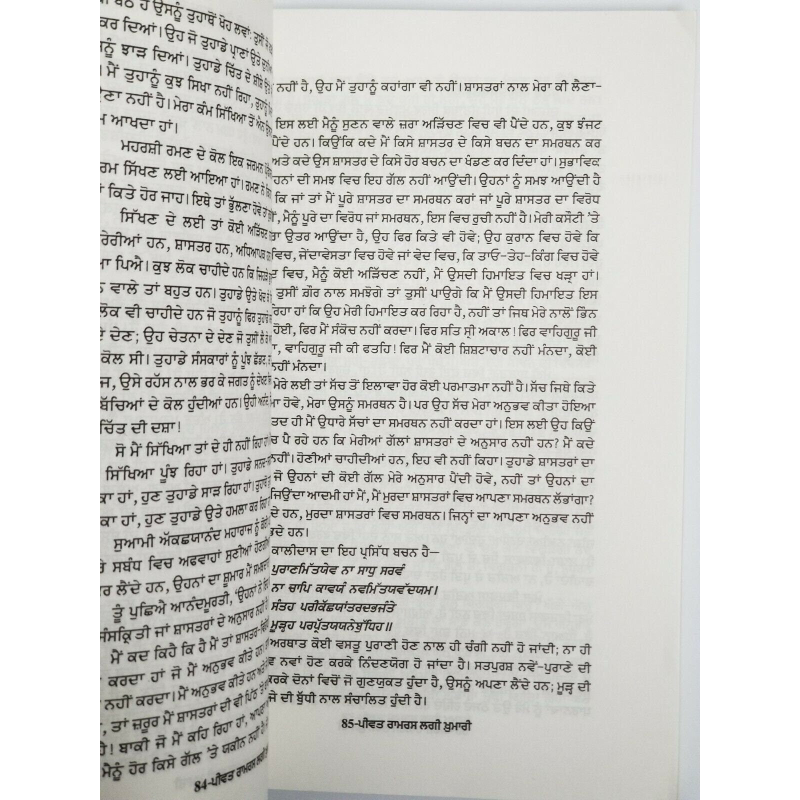 ਕਰ ਦਿਆਂ। ਉਹ ਜੋ ਤੁਹਾਡੇ ਪ੍ਰਾਣਾਂ ਉਤੇ
ਝਾੜ ਦਿਆਂ। ਤੁਹਾਡੇ ਚਿੱਤ ਦੇ ਸ਼ੀਸ਼ੇ
ਮੈਂ ਤੁਹਾਨੂੰ ਕੁਝ ਸਿਖਾ ਨਹੀਂ ਰਿਹਾ, ਤੁਹਾਨੂੰ
ਨਹੀਂ ਹੈ। ਮੇਰਾ ਕੰਮ ਸਿੱਖਿਆ ਤੋਂ
ਆਖਦਾ ਹਾਂ।
ਮਹਰਸ਼ੀ ਰਮਣ ਦੇ ਕੋਲ ਇਕ ਜਰਮਨ
ਸਿੱਖਣ ਲਈ ਆਇਆ ਹਾਂ। ਰਮਣ ਨੇ
ਕਿਤੇ ਹੋਰ ਜਾਹ। ਇਥੇ ਤਾਂ ਭੁੱਲਣਾ ਹੋਵੇ ਤਾਂ
ਸਿੱਖਣ ਦੇ ਲਈ ਤਾਂ ਕੋਈ ਅੜਿੱਚਣ
ਹਨ, ਸ਼ਾਸਤਰ ਹਨ, ਅਧਿਆਪਕ
ਪਿਐ। ਕੁਝ ਲੋਕ ਚਾਹੀਦੇ ਹਨ ਕਿ
ਵਾਲੇ ਤਾਂ ਬਹੁਤ ਹਨ। ਤੁਹਾਡੇ ਉਤੇ
ਲੋਕ ਵੀ ਚਾਹੀਦੇ ਹਨ ਜੋ ਤੁਹਾਨੂੰ ਫਿਰ ਤੁਹਾਡੇ
ਦੇ ਦੇਣ; ਉਹ ਚੇਤਨਾ ਦੇ ਦੇਣ ਜੋ ਤੁਸੀਂ
ਕੋਲ ਸੀ। ਤੁਹਾਡੇ ਸੰਸਕਾਰਾਂ ਨੂੰ ਪੂੰਝ ਛੱਡਣ,
ਉਸੇ ਰਹੱਸ ਨਾਲ ਭਰ ਕੇ ਜਗਤ ਨੂੰ
ਬੱਚਿਆਂ ਦੇ ਕੋਲ ਹੁੰਦੀਆਂ ਹਨ। ਉਹੀ
ਚਿੱਤ ਦੀ ਦਸ਼ਾ!
ਸੋ ਮੈਂ ਸਿੱਖਿਆ ਤਾਂ ਦੇ ਹੀ ਨਹੀਂ ਰਿਹਾ ਹਾਂ
ਸਿੱਖਿਆ ਪੂੰਝ ਰਿਹਾ ਹਾਂ। ਤੁਹਾਡੇ
ਹਾਂ, ਹੁਣ ਤੁਹਾਡੇ ਸਾੜ ਰਿਹਾ ਹਾਂ।
ਹਾਂ, ਹੁਣ ਤੁਹਾਡੇ ਉਤੇ ਹਮਲਾ ਕਰ ਰਿਹਾ
ਸੁਆਮੀ ਅੱਕਛਯਾਨੰਦ ਮਹਾਰਾਜ ਨੂੰ
ਸਬੰਧ ਵਿਚ ਅਫਵਾਹਾਂ ਸੁਣੀਆਂ
ਲੈਂਦੇ ਹਨ, ਉਹਨਾਂ ਦਾ ਸ਼ੁਮਾਰ ਮੈਂ
ਤੂੰ ਪੁਛਿਐ ਆਨੰਦਮੂਰਤੀ, 'ਉਹਨਾਂ ਨੇ
ਸੰਸਕ੍ਰਿਤੀ ਜਾਂ ਸ਼ਾਸਤਰਾਂ ਦੇ ਅਨੁਸਾਰ ਨਹੀਂ
ਮੈਂ ਕਦ ਕਿਹੈ ਕਿ ਹੈ ਮੈਂ ਤਾਂ ਸ਼ਾਸਤਰ
ਕਰਦਾ ਹਾਂ ਜੋ ਮੈਂ ਅਨੁਭਵ ਕੀਤੇ ਹਨ।
ਨਹੀਂ ਕਰਦਾ। ਮੈਂ ਅਨੁਭਵ ਕੀਤੇ ਹਨ
ਤਾਂ ਜ਼ਰੂਰ ਮੈਂ ਸ਼ਾਸਤਰਾਂ ਦੀ ਵੀ ਪਿੱਠ
ਬਾਕੀ ਜੋ ਮੈਂ ਕਹਿ ਰਿਹਾ ਹਾਂ,
ਮੈਨੂੰ ਹੋਰ ਕਿਸੇ ਗੱਲ 'ਤੇ ਯਕੀਨ ਨਹੀਂ
84-ਪੀਵਤ ਰਾਮਰਸ ਲਗੀ
ਨਹੀਂ ਹੈ, ਉਹ ਮੈਂ ਤੁਹਾਨੂੰ ਕਹਾਂਗਾ ਵੀ ਨਹੀਂ। ਸ਼ਾਸਤਰਾਂ ਨਾਲ ਮੇਰਾ ਕੀ ਲੈਣਾ-
ਇਸ ਲਈ ਮੈਨੂੰ ਸੁਣਨ ਵਾਲੇ ਜ਼ਰਾ ਅੜਿੱਚਣ ਵਿਚ ਵੀ ਪੈਂਦੇ ਹਨ, ਕੁਝ ਝੰਜਟ
ਪੈਂਦੇ ਹਨ। ਕਿਉਂਕਿ ਕਦੇ ਮੈਂ ਕਿਸੇ ਸ਼ਾਸਤਰ ਦੇ ਕਿਸੇ ਬਚਨ ਦਾ ਸਮਰਥਨ ਕਰ
ਅਤੇ ਕਦੇ ਉਸ ਸ਼ਾਸਤਰ ਦੇ ਕਿਸੇ ਹੋਰ ਬਚਨ ਦਾ ਖੰਡਣ ਕਰ ਦਿੰਦਾ ਹਾਂ। ਸੁਭਾਵਿਕ
ਹਨਾਂ ਦੀ ਸਮਝ ਵਿਚ ਇਹ ਗੱਲ ਨਹੀਂ ਆਉਂਦੀ। ਉਹਨਾਂ ਨੂੰ ਸਮਝ ਆਉਂਦੀ ਹੈ
ਕਿ ਜਾਂ ਤਾਂ ਮੈਂ ਪੂਰੇ ਸ਼ਾਸਤਰ ਦਾ ਸਮਰਥਨ ਕਰਾਂ ਜਾਂ ਪੂਰੇ ਸ਼ਾਸਤਰ ਦਾ ਵਿਰੋਧ
ਮੈਨੂੰ ਪੂਰੇ ਦਾ ਵਿਰੋਧ ਜਾਂ ਸਮਰਥਨ, ਇਸ ਵਿਚ ਰੁਚੀ ਨਹੀਂ ਹੈ। ਮੇਰੀ ਕਸੌਟੀ 'ਤੇ
ਉਤਰ ਆਉਂਦਾ ਹੈ, ਉਹ ਫਿਰ ਕਿਤੇ ਵੀ ਹੋਵੇ; ਉਹ ਕੁਰਾਨ ਵਿਚ ਹੋਵੇ ਕਿ
ਵਿਚ, ਜੇਂਦਾਵੇਸਤਾ ਵਿਚ ਹੋਵੇ ਜਾਂ ਵੇਦ ਵਿਚ, ਕਿ ਤਾਓ-ਤੇਹ-ਕਿੰਗ ਵਿਚ ਹੋਵੇ
ਵਿਚ, ਮੈਨੂੰ ਕੋਈ ਅੜਿੱਚਣ ਨਹੀਂ, ਮੈਂ ਉਸਦੀ ਹਿਮਾਇਤ ਵਿਚ ਖੜ੍ਹਾ ਹਾਂ।
ਤੁਸੀਂ ਗ਼ੌਰ ਨਾਲ ਸਮਝੋਗੇ ਤਾਂ ਤੁਸੀਂ ਪਾਉਗੇ ਕਿ ਮੈਂ ਉਸਦੀ ਹਿਮਾਇਤ ਇਸ
ਰਿਹਾ ਹਾਂ ਕਿ ਉਹ ਮੇਰੀ ਹਿਮਾਇਤ ਕਰ ਰਿਹਾ ਹੈ, ਨਹੀਂ ਤਾਂ ਜਿਥੇ ਮੇਰੇ ਨਾਲੋਂ ਭਿੰਨ
ਹੋਈ, ਫਿਰ ਮੈਂ ਸੰਕੋਚ ਨਹੀਂ ਕਰਦਾ। ਫਿਰ ਸਤਿ ਸ੍ਰੀ ਅਕਾਲ! ਫਿਰ ਵਾਹਿਗੁਰੂ ਜੀ
ਵਾਹਿਗੁਰੂ ਜੀ ਕੀ ਫਤਹਿ! ਫਿਰ ਮੈਂ ਕੋਈ ਸ਼ਿਸ਼ਟਾਚਾਰ ਨਹੀਂ ਮੰਨਦਾ, ਕੋਈ
ਨਹੀਂ ਮੰਨਦਾ।
ਮੇਰੇ ਲਈ ਤਾਂ ਸੱਚ ਤੋਂ ਇਲਾਵਾ ਹੋਰ ਕੋਈ ਪਰਮਾਤਮਾ ਨਹੀਂ ਹੈ। ਸੱਚ ਜਿਥੇ ਕਿਤੇ
ਹੋਵੇ, ਮੇਰਾ ਉਸਨੂੰ ਸਮਰਥਨ ਹੈ। ਪਰ ਉਹ ਸੱਚ ਮੇਰਾ ਅਨੁਭਵ ਕੀਤਾ ਹੋਇਆ
ਤਦ ਹੀ ਮੈਂ ਉਧਾਰੇ ਸੱਚਾਂ ਦਾ ਸਮਰਥਨ ਨਹੀਂ ਕਰਦਾ ਹਾਂ। ਇਸ ਲਈ ਉਹ ਕਿਉਂ
ਪੈ ਰਹੇ ਹਨ ਕਿ ਮੇਰੀਆਂ ਗੱਲਾਂ ਸ਼ਾਸਤਰਾਂ ਦੇ ਅਨੁਸਾਰ ਨਹੀਂ ਹਨ? ਮੈਂ ਕਦੇ
ਨਹੀਂ। ਹੋਣੀਆਂ ਚਾਹੀਦੀਆਂ ਹਨ, ਇਹ ਵੀ ਨਹੀਂ ਕਿਹਾ। ਤੁਹਾਡੇ ਸ਼ਾਸਤਰਾਂ ਦਾ
ਜੋ ਉਹਨਾਂ ਦੀ ਕੋਈ ਗੱਲ ਮੇਰੇ ਅਨੁਸਾਰ ਪੈਂਦੀ ਹੋਵੇ, ਨਹੀਂ ਤਾਂ ਉਹਨਾਂ ਦਾ
ਜਿਉਂਦਾ ਆਦਮੀ ਹਾਂ ਮੈਂ, ਮੈਂ ਮੁਰਦਾ ਸ਼ਾਸਤਰਾਂ ਵਿਚ ਆਪਣਾ ਸਮਰਥਨ ਲੱਭਾਂਗਾ?
ਦੇ ਹਨ, ਮੁਰਦਾ ਸ਼ਾਸਤਰਾਂ ਵਿਚ ਸਮਰਥਨ। ਜਿਨ੍ਹਾਂ ਦਾ ਆਪਣਾ ਅਨੁਭਵ ਨਹੀਂ
ਦੇ ਹਨ।
ਕਾਲੀਦਾਸ ਦਾ ਇਹ ਪ੍ਰਸਿੱਧ ਬਚਨ ਹੈ—
ਪੁਰਾਣਮਿੱਤਯੇਵ ਨਾ ਸਾਧੁ ਸਰਵੰ
ਨਾ ਚਾਪਿ ਕਾਵਯੰ ਨਵਮਿੱਤਯਵੱਦਯਮ।
ਸੰਤਹ ਪਰੀਕੱਛਯਾਂਤਰਦਭਜੰਤੇ
ਮੂੜ੍ਹਹ ਪਰਪ੍ਰੱਤਯਯਨੇਬੁੱਧਿਹ॥
ਅਰਥਾਤ ਕੋਈ ਵਸਤੂ ਪੁਰਾਣੀ ਹੋਣ ਨਾਲ ਹੀ ਚੰਗੀ ਨਹੀਂ ਹੋ ਜਾਂਦੀ; ਨਾ ਹੀ
ਨਵਾਂ ਹੋਣ ਕਰਕੇ ਨਿੰਦਣਯੋਗ ਹੋ ਜਾਂਦਾ ਹੈ। ਸਤਪੁਰਸ਼ ਨਵੇਂ-ਪੁਰਾਣੇ ਦੀ
ਕਰਕੇ ਦੋਨਾਂ ਵਿਚੋਂ ਜੋ ਗੁਣਯੁਕਤ ਹੁੰਦਾ ਹੈ, ਉਸਨੂੰ ਅਪਣਾ ਲੈਂਦੇ ਹਨ; ਮੂੜ੍ਹ ਦੀ
ਜੇ ਦੀ ਬੁੱਧੀ ਨਾਲ ਸੰਚਾਲਿਤ ਹੁੰਦੀ ਹੈ।
85-ਪੀਵਤ ਰਾਮਰਸ ਲਗੀ ਖ਼ੁਮਾਰੀ